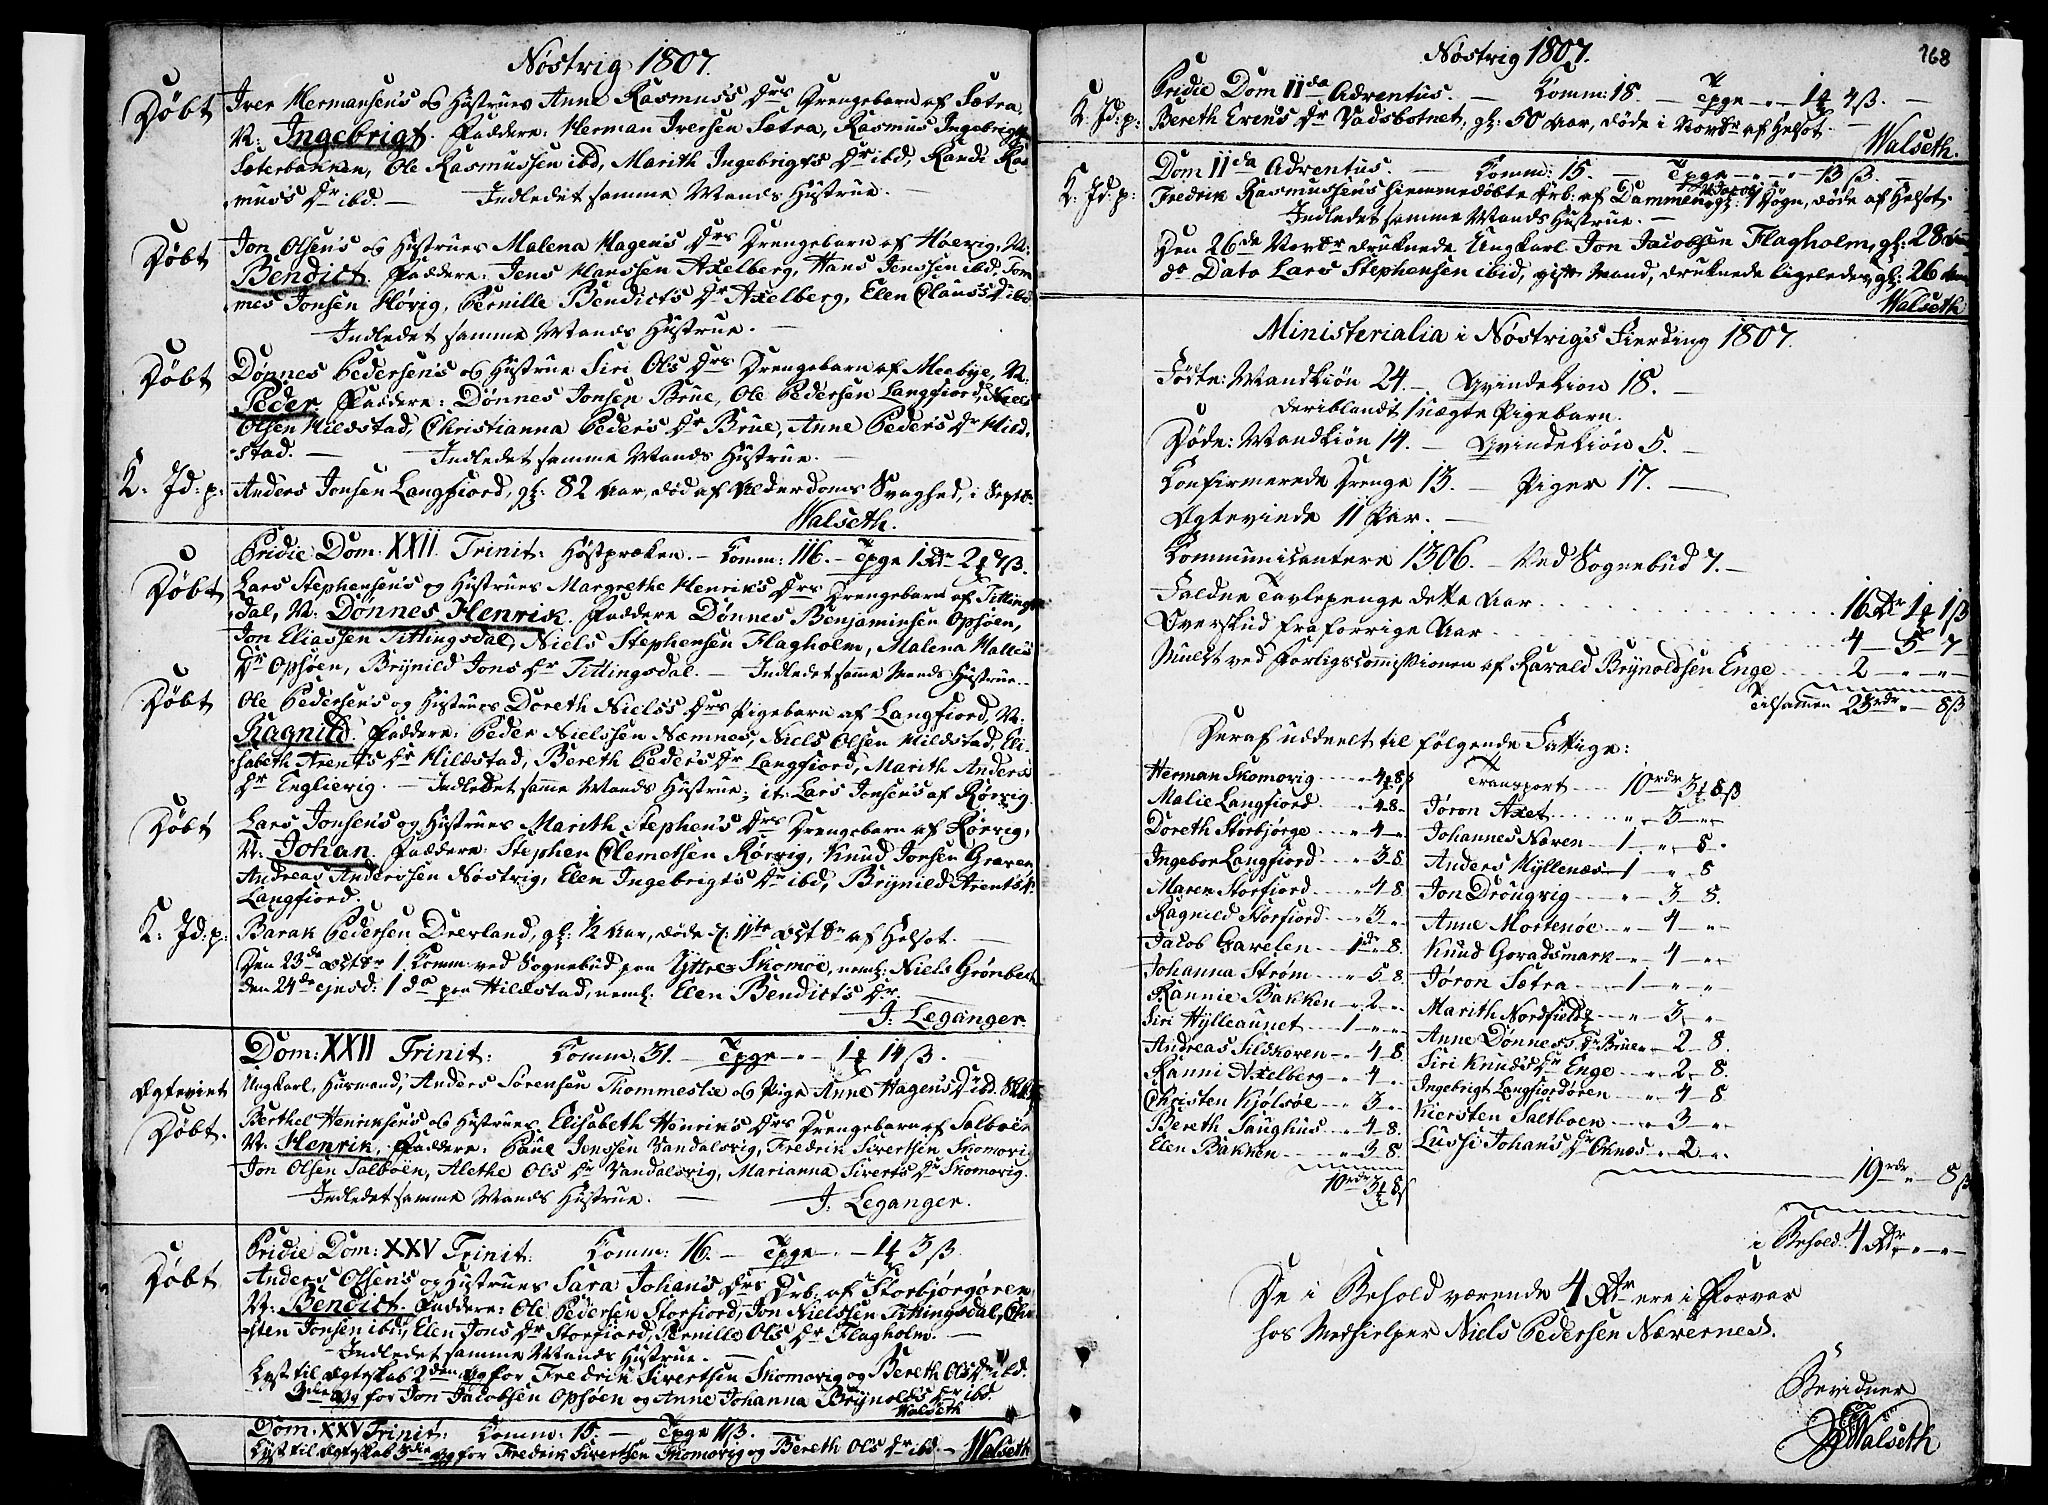 Nöstrig 1807.
Döbt Iver Hermansen's og Hustrues Anne Rasmus's Drs Drengebarn af Sætra,
N: Ingebrigt. Faddere: Herman Iversen Sætra, Rasmus Ingebrigts.
Sæterbakken, Ole Rasmussen ibd, Marith Ingebrigt's Dr ibd, Randi Ras
mus's Dr ibd. — Indledet samme Mands Hustrue. —
Döbt Jon Olsen's og Hustrues Malena Hagen's Drs Drengebarn af Höevig, N:
Bendict. Faddere: Jens Hanssen Axelberg, Hans Jenssen ibd, Tom
mes Jonsen Hövig, Pernille Bendict's Dr Axelberg, Elen Claus's Dr ibd
Indledet samme Mands Hustrue. —
Döbt Dönnes Pedersen's og Hustrue Siri Ols Drs Drengebarn af Meebye, N:
Peder. Faddere: Dönnes Jonsen Brue, Ole Pedersen Langfiord, Niels
Olsen Hildstad, Christianna Peder's Dr Brue, Anne Peder's Dr Hild
stad. — Indledet samme Mands Hustrue. —
K: Jd: p: Anders Jonsen Langfiord, gl: 82 Aar, död af Alderdoms Svaghed, i Septbr.
Walseth.
Pridie Dom: XXII Trinit: Höstpræken. — Komm: 116. — Tpge 1 Rdr 2 # 7 ß.
Döbt Lars Stephensen's og Hustrues Margrethe Henrik's Drs Drengebarn af Tittings
dal, N: Dönnes Henrik. Faddere Dönnes Benjaminsen Opsöen,
Jon Eliassen Tittingsdal, Niels Stephensen Flagholm, Malena
Dr Opsöen, Brynild Jons Dr Tittingsdal. — Indledet samme Mands Hustrue. —
Döbt Ole Pedersen's og Hustrues Doreth Niels's Drs Pigebarn af Langfiord, N:
Ragnild. Faddere: Peder Nielssen Næmnes, Niels Olsen Hildstad, Eli
sabeth Arent's Dr Hildstad, Bereth Peder's Dr Langfiord, Marith Anders
Dr Englievig. — Indledet samme Mands Hustrue; it: Lars Jonsen's af Rörvig.
Döbt Lars Jonsen's og Hustrues Marith Stephen's Drs Drengebarn af Rörvig,
N: Johan. Faddere: Stephen Clemetsen Rörvig, Knud Jonsen Graven
Andreas Anderssen Nöstvig, Elen Ingebrigt's Dr ibd, Brynild Arent's Dr
Langfiord.
K: Jd: p: Barak Pedersen Drevland, gl: ½ Aar, döde d: 11te Octbr af Helsot.
Den 23de Octbr 1 Komm: ved Sognebud paa Yttre Skomöe, neml: Niels Grönbech
den 24de ejusd: 1 do paa Hildstad, neml: Elen Bendict's Dr.
J: Leganger.
Dom: XXII Trinit: Komm: 31. — Tpge " 1 # 14 ß. —
Ægteviet Ungkarl, Huusmand, Anders Sörensen Thommeslie og Pige Anne Hagen's Dr ibd.
Döbt. Berthel Henriksen's og Hustrues Elisabeth Henrik's Drs Drengebarn af Salboen
N: Henrik. Faddere: Paul Jenssen Vandalsvig, Fredrik Sivertsen Skomovig
Jon Olsen Salböen, Alethe Ols Dr Vandalsvig, Marianna Siverts Dr Skomovig.
Indledet samme Mands Hustrue. — J: Leganger.
Döbt Pridie Dom: XXV Trinit: Komm: 16. — Tpge " 1 # 3 ß.
Anders Olsen's og Hustrues Sara Johan's Drs Drb: af Storbjörgören
N: Bendict. Faddere: Ole Pedersen Storfiord, Jon Nielssen Tittingsdal, Chri
sten Jonsen ibd, Elen Jons Dr Storfiord, Pernille Ols Dr Flagholm. —
Indledet samme Mands Hustrue. —
Lyst til Ægteskab 2den Gg for Fredrik Sivertsen Skomovig og Bereth Ols Dr ibd.
3die Gg for Jon Jacobsen Opsöen og Anne Johanna Brynold's Dr ibd.
Walseth
Dom: XXV Trinit: Komm: 15. — Tpge 11 ß.
Lyst til Ægteskab 3die Gg for Fredrik Sivertsen Skomovig og Bereth Ols Dr ibd. — Walseth
Nöstvig 1807.
168
Pridie Dom IIda Adventus. — Komm: 18. — Tpge " 1 # 4 ß. —
K: Jd: p: Bereth Even's Dr Vadsbotnet, gl: 50 Aar, döde i Novbr af Helsot. —
Walseth.
Dom IIda Adventus. — Komm: 15. — Tpge " " 13 ß. —
K: Jd: p: Fredrik Rasmussens hiemmedöbte Drb: af Dammen, N: Jacob, gl: 1 Dögn, döde af Helsot.
Indledet samme Mands Hustrue. —
Den 26de Novbr druknede Ungkarl Jon Jacobsen Flagholm, gl: 28 Aar
do Dato Lars Stephensen ibid, gift Mand, druknede ligeledes, gl: 26 Aar
Walseth
Ministerialia i Nöstvig's Fierding 1807.
Födte: Mandkiön 24. — Qvindekiön 18. —
deriblandt 1 uægte Pigebarn.
Döde: Mandkiön 14. — Qvindekiön 5. —
Konfirmerede Drenge 13. — Piger 17. —
Ægteviede 11 Par. —
Kommunikantere 1306. — Ved Sognebud 7. —
Faldne Tavlepenge dette Aar . . . 16 Rdr 1 # 1 ß
Overskud fra forrige Aar . . . 4 — 5 — 7
Mulct ved Forligscommissionen af Harald Brynoldsen Enge . . . 2 — " — "
Tilsamen 23 rdr " 8 ß
Deraf uddeelt til fölgende Fattige:
Herman Skomovig " 4 # 8 ß
Malie Langfiord " 4 - 8 -
Doreth Storbjörge " 4 - "
Ingebor Langfiord " 3 - 8
Maren Storfiord " 4 - 8
Ragnild Storfiord " 3 - "
Jacob Gavelen 1 dr " 8
Johanna Ström " 5 - 8
Rannie Bakken " 2 - "
Siri Hylleaunet 1 - " - "
Andreas Sildkoven " 4 - 8
Ranni Axelberg " 4 - "
Christen Kjölsöe " 3 - "
Bereth Saughus " 4 - 8
Elen Bakken " 3 - 8
10 rdr 3 # 8 ß
Transport 10 rdr 3 # 8 ß
Jöron Axet " 3 - "
Johannes Næven 1 - " - 8
Anders Hyllenæs 1 - " - 8
Jon Drougvig " 3 - 8
Anne Mortenöe " 4 - "
Knud Goradsmark " 4 - "
Jöron Sætra 1 - " - "
Marith Nordfield " 3 - "
Anne Dönnes's Dr Brue " 2 - 8
Siri Knud's Dr Enge " 2 - 8
Ingebrigt Langfiordören " 4 - 8
Kiersten Saltboen " 3 - "
Lussi Johan's Dr Oknæs " 2 - "
19 rdr " 8 ß
i Behold. 4 Rdr " "
De i Behold værende 4 Rdr ere i Forvar
hos Medhielper Niels Pedersen Nævernes.
Bevidner
Walseth